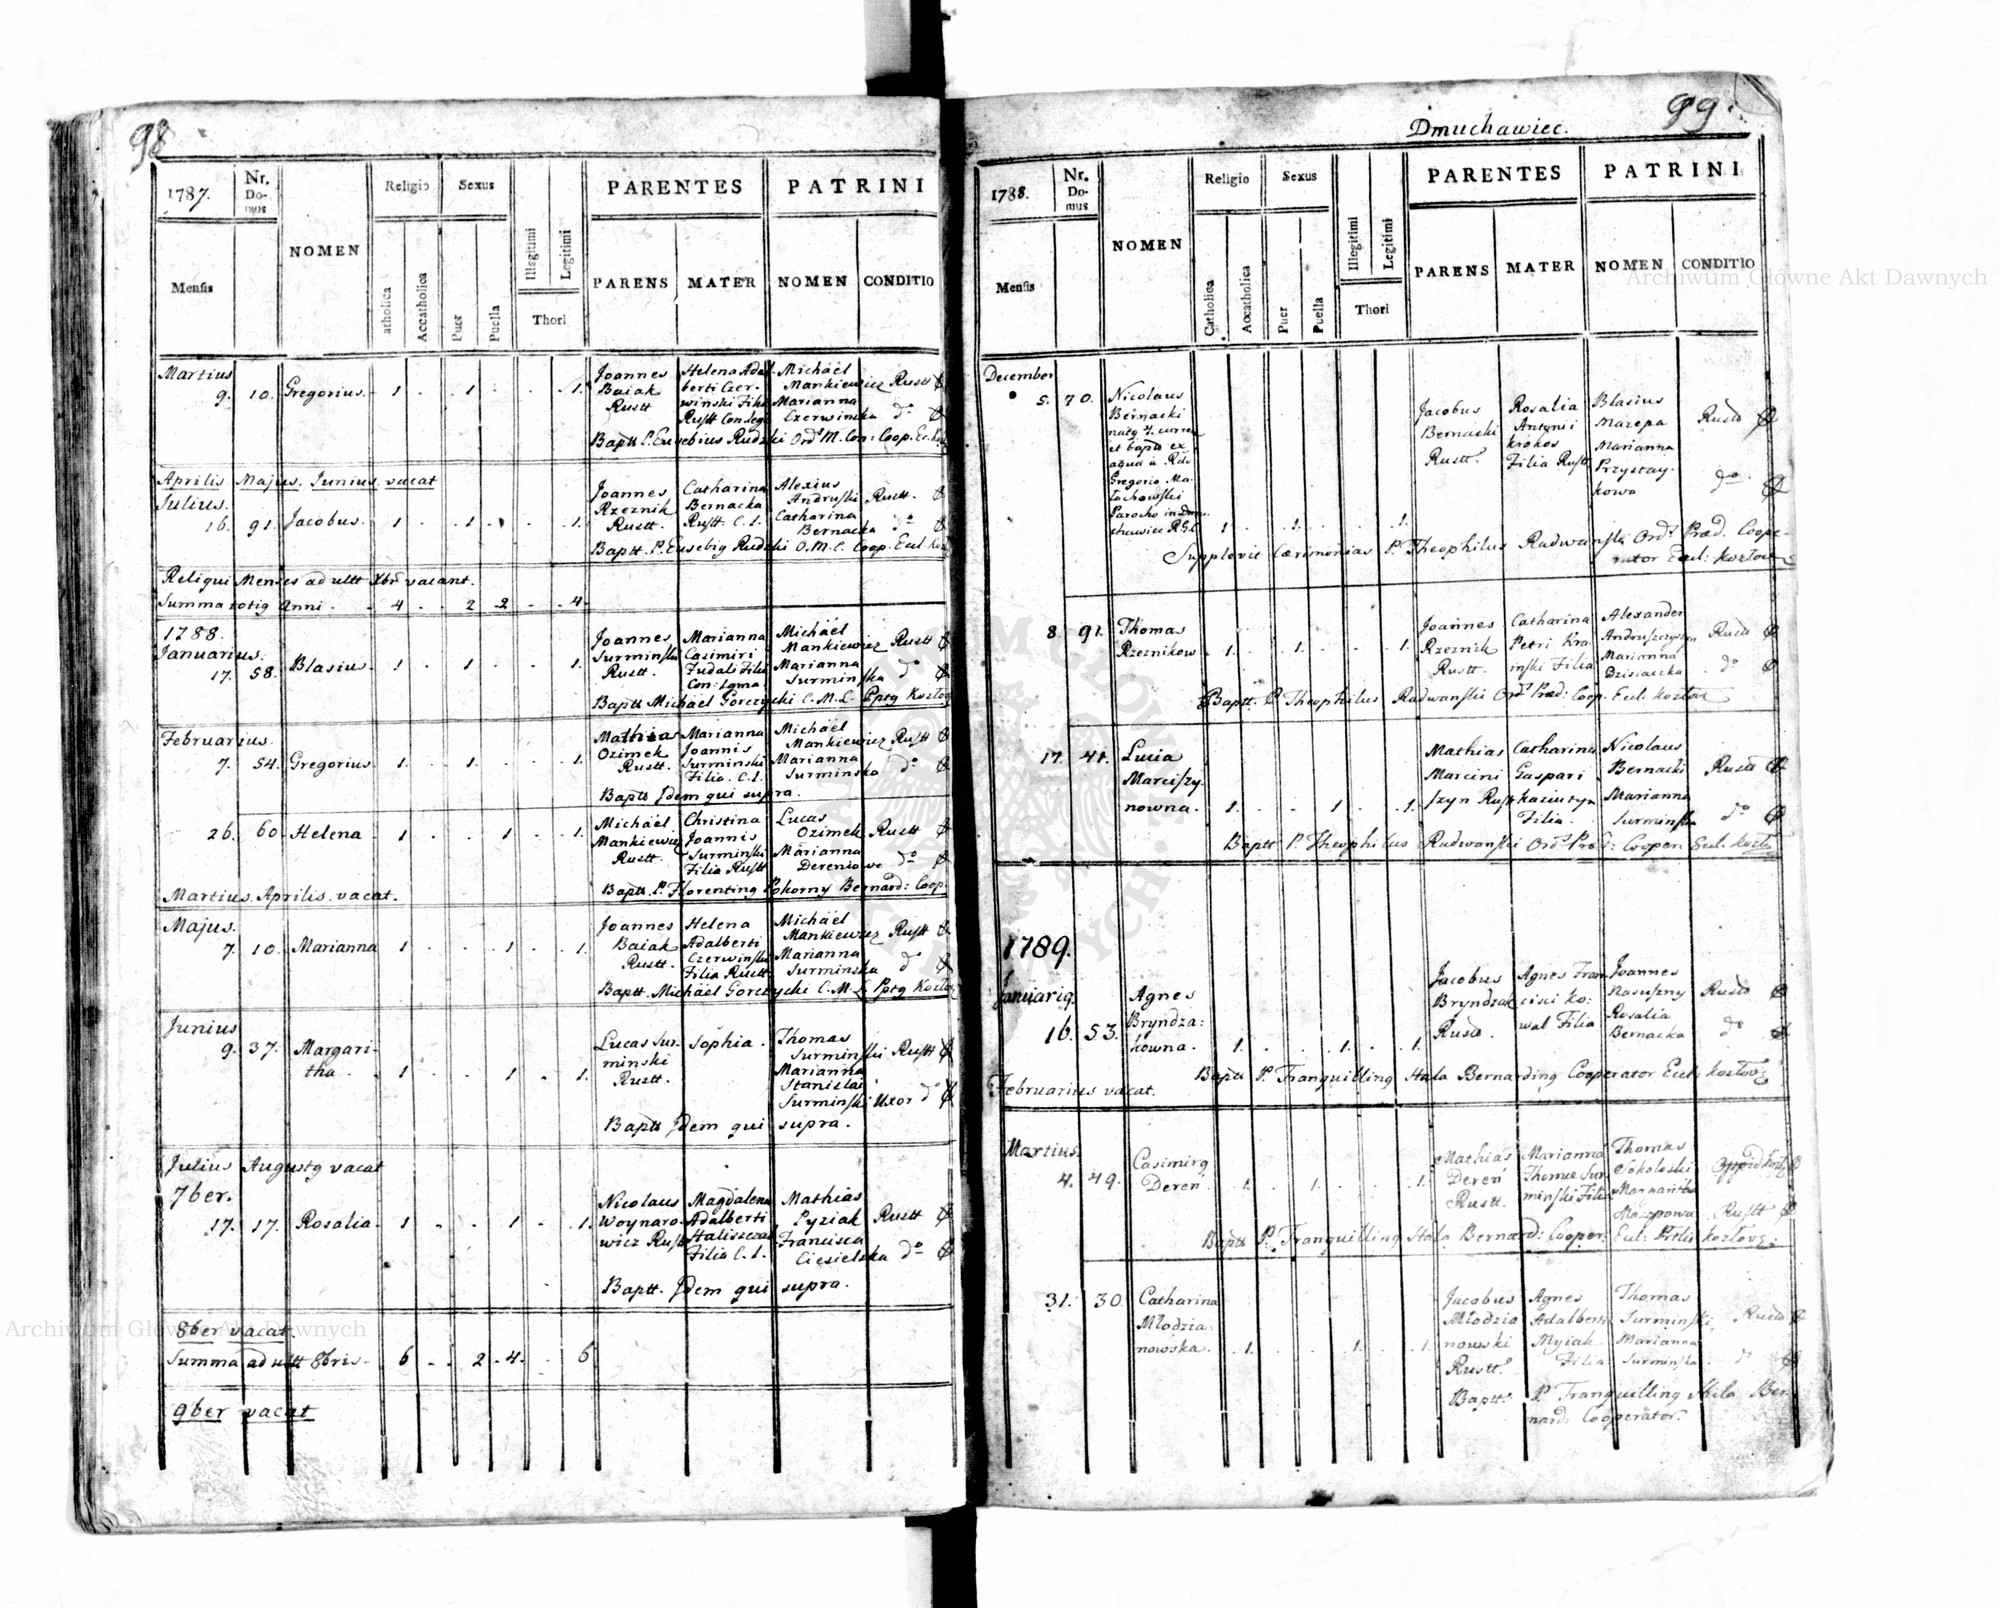 98
1787.
Nr. Domus
NOMEN
Religio
Sexus
PARENTES
PATRINI
Mensis
atholica
Accatholica
Puer
Puella
Illegitimi
Legitimi
Thori
PARENS
MATER
NOMEN
CONDITIO
Martius
9. 10. Gregorius. 1 . 1 . . 1.
Joannes Baiak Rustt
Helena Adalberti Czerwinski Filia
Michaël Mankiewicz Rustt
Marianna Czerwinska do
Baptt P. Eusebius Rudzki Ord. M. Con: Coop.
Aprilis Majus. Junius. vacat
Julius.
16. 91. Jacobus. 1 . 1 . . 1.
Joannes Rzeznik Rustt.
Catharina Bernacka Rustt. C. L.
Alexius Andruski Rustt.
Catharina Bernacka do
Baptt. P. Eusebig Rudzki O. M. C. Coop. Eccl.
Reliqui Menses ad ultt Xbr vacant.
Summa totig Anni . 4 . . 2 2 . . 4
1788.
Januarius.
17. 58. Blasius. 1 . 1 . . 1.
Joannes Surminski Rustt.
Marianna Casimiri Filia
Michaël Mankiewicz Rustt
Marianna Surminska do
Baptt Michaël Gorczycki C. M. L. Pptg
Februarius.
7. 54. Gregorius. 1. . 1. . . 1.
Mathias Ozimek Rustt.
Marianna Joannis Surminski Filia. C. L.
Michaël Mankiewicz Rustt
Marianna Surminska do
Baptt Jdem qui supra.
26. 60. Helena 1 . . 1 . 1.
Michaël Mankiewicz Rustt.
Christina Joannis Surminski Filia Rustt
Lucas Ozimek Rustt
Marianna do
Baptt. P. Florenting Pokorny Bernard: Coop.
Martius. Aprilis. vacat.
Majus.
7. 10. Marianna 1 . . 1 . 1.
Joannes Baiak Rustt.
Helena Adalberti Czerwinski Filia Rustt
Michaël Mankiewicz Rustt
Marianna Surminska do
Baptt. Michaël Gorczycki C. M. L. Pptg
Junius
9. 37. Margaritha . 1 . . 1 . 1.
Lucas Surminski Rustt.
Sophia.
Thomas Surminski Rustt
Marianna Stanislai Surminski Uxor do
Baptt Jdem qui supra.
Julius Augustg vacat
7ber.
17. 17. Rosalia. 1 . . 1 . 1.
Nicolaus Woynarowicz Rustt
Magdalena Adalberti Filia C. L.
Mathias Pyziak Rustt
Francisca Ciesielska do
Baptt. Jdem qui supra.
8ber vacat
Summa ad ultt 8bris. 6 . . 2 . 4. . 6
9ber vacat
99.
Dmuchawiec.
1788.
Nr. Domus
NOMEN
Religio
Sexus
PARENTES
PATRINI
Mensis
Catholica
Accatholica
Puer
Puella
Illegitimi
Legitimi
Thori
PARENS
MATER
NOMEN
CONDITIO
December
5. 70. Nicolaus Bernacki
et bapto ex aqua a
Gregorio
Parocho in
1 . 1. . . 1.
Jacobus Bernacki Rustt.
Rosalia Antonii Krokos Filia Rustt
Blasius Mazepa Rustt
Marianna Przystaykowa do
Supplevit Cæremonias P. Theophilus Radwanski Ord. Præd. Cooperator Eccl:
8. 91. Thomas Rzeznikow . 1. . 1. . . 1.
Joannes Rzeznik Rustt.
Catharina Petri Filia
Alexander Rustt
Marianna do
Baptt. P. Theophilus Radwanski Ord. Præd: Coop. Eccl.
17. 41. Lucia Marciszynowna. 1. . . 1 . 1.
Mathias Marciniszyn Rustt
Catharina Gaspari Filia.
Nicolaus Bernacki Rustt
Marianna Surminska do
Baptt P. Theophilus Radwanski Ord. Præd: Cooper. Eccl.
1789.
Januarig.
16. 53. Agnes Bryndzakowna. 1. . . 1. . 1.
Jacobus Bryndzak Rustt.
Agnes Francisci Kowal Filia
Joannes Rustt
Rosalia Bernacka do
Baptt P. Tranquilling Bernarding Cooperator Eccl:
Februarius vacat.
Martius.
4. 49. Casimirg Dereń . 1. . 1. . . 1.
Mathias Dereń Rustt.
Marianna Thomæ Surminski Filia
Thomas
Margaritha Rustt
Baptt P. Tranquilling Bernard: Cooper: Eccl:
31. 30. Catharina Młodzianowska. . 1. . . 1. . 1.
Jacobus Młodzianowski Rustt.
Agnes Adalberti Filia
Thomas Surminski Rustt
Marianna Surminska do
Baptt. P. Tranquilling Bernard: Cooperator.
Archiwum Główne Akt Dawnych
Archiwum Główne Akt Dawnych